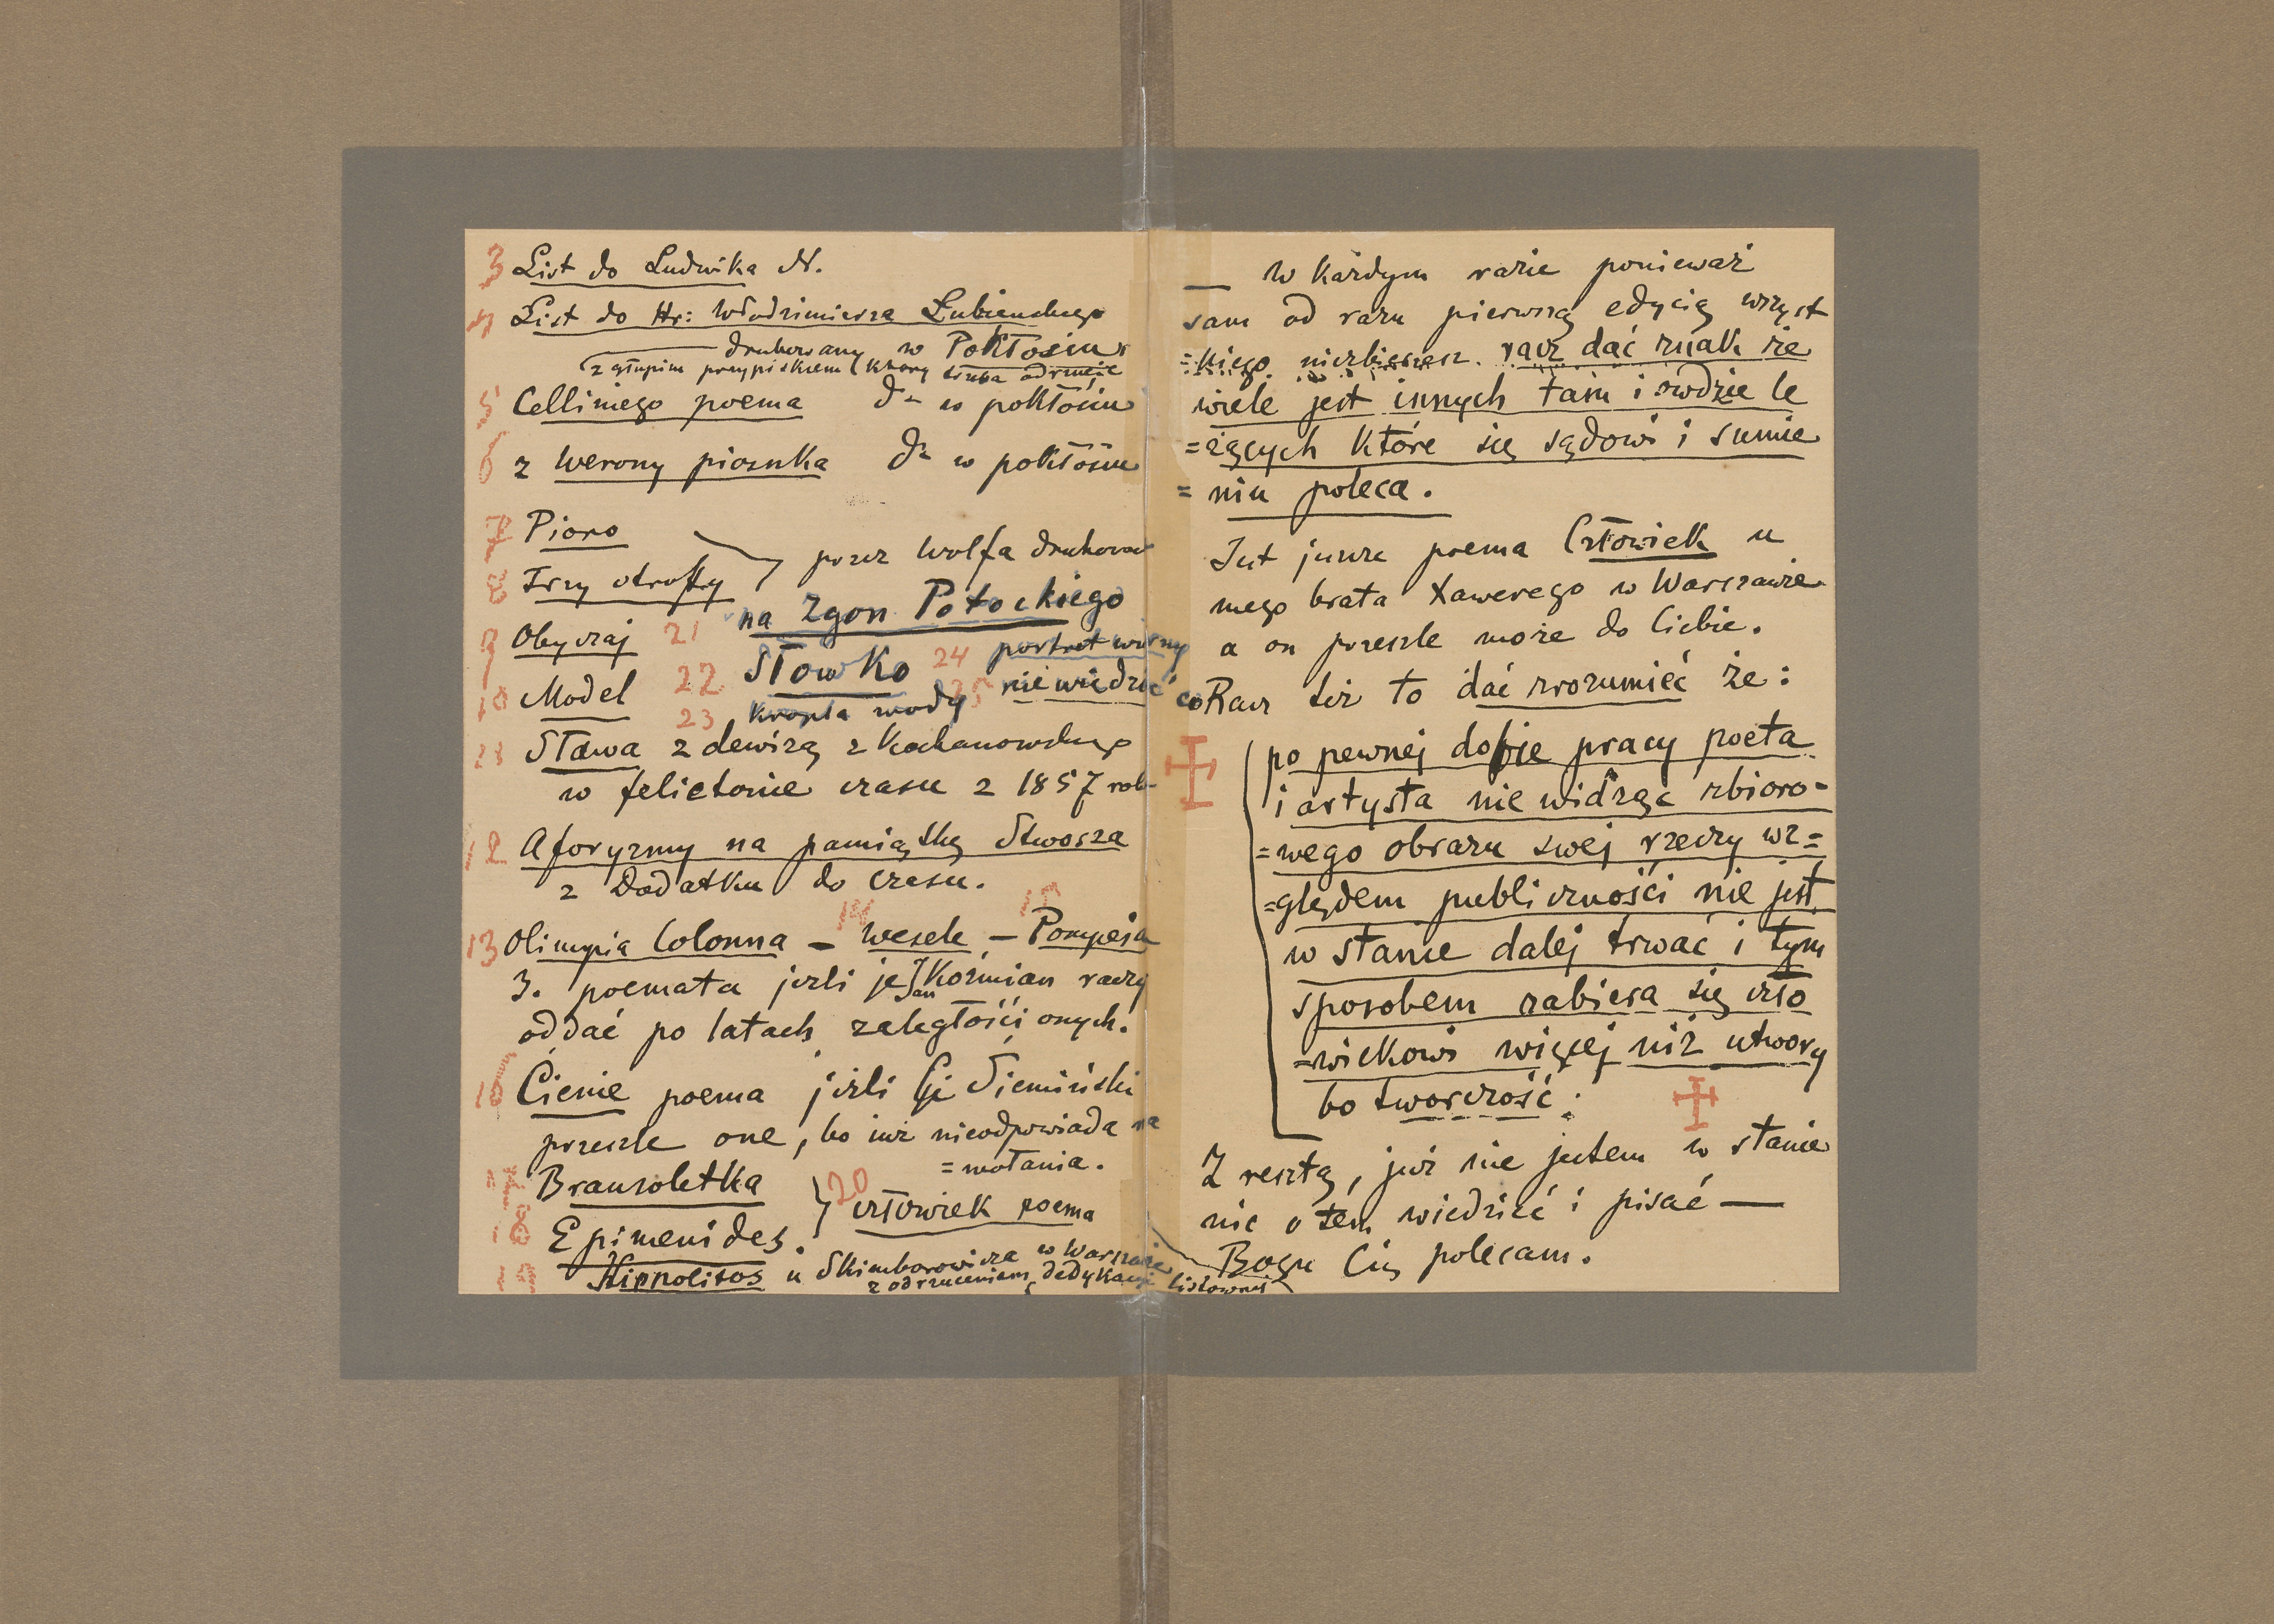 3 List do Ludwika N.
4 List do Hr: Włodzimierza Łubieńskiego
drukowany w Pokłosiu
(z głupim przypiskiem (który trzeba odrzucić
5 Celliniego poema do w pokłosiu
6 z Werony piosnka do w pokłosiu
7 Pioro
przez Wolfa drukowa
8 Trzy strofky
na Zgon Potockiego
9 Obyczaj 21 Słowko 24 portret wierny
10 Model 22 25 nie wiedzieć co
23 kropla wody
11 Sława z dewizą z Kochanowskiego
w felietonie czasu z 1857 rok
12 Aforyzmy na pamiątkę Stwosza
z Dodatku do Czasu.
14 15
13 Olimpia Colonna – Wesele – Pompeja
3. poemata jeżli je Jan Koźmian raczy
oddać po latach zaległości onych.
16 Cienie poema jeżli Siemiński
przeszle one, bo już nieodpowiada na
=wołania.
17 Branzoletka
20 człowiek poema
18 Epimenides.
19 Hippolitos u Skimborowicza w Warszawie
z odrzuceniem dedykacji listownej
— W każdym razie ponieważ
sam od razu pierwszą edycią wszyst
=kiego niezbierzesz. racz dać znak że
wiele jest innych tam i owdzie le
=żących które się sądowi i sumie
=niu poleca.
Jest jeszcze poema Człowiek u
mego brata Xawerego w Warszawie
a on przeszle może do Ciebie.
Racz też to dać zrozumieć że:
po pewnej dobie pracy poeta
i artysta nie widząc zbioro-
=wego obrazu swej rzeczy wz=
=ględem publiczności nie jest
w stanie dalej trwać i tym
sposobem zabiera się czło
=wiekowi więcej niż utwory
bo tworczość:
Z resztą, już nie jestem w stanie
nic o tem wiedzieć i pisać —
Bogu Cię polecam.